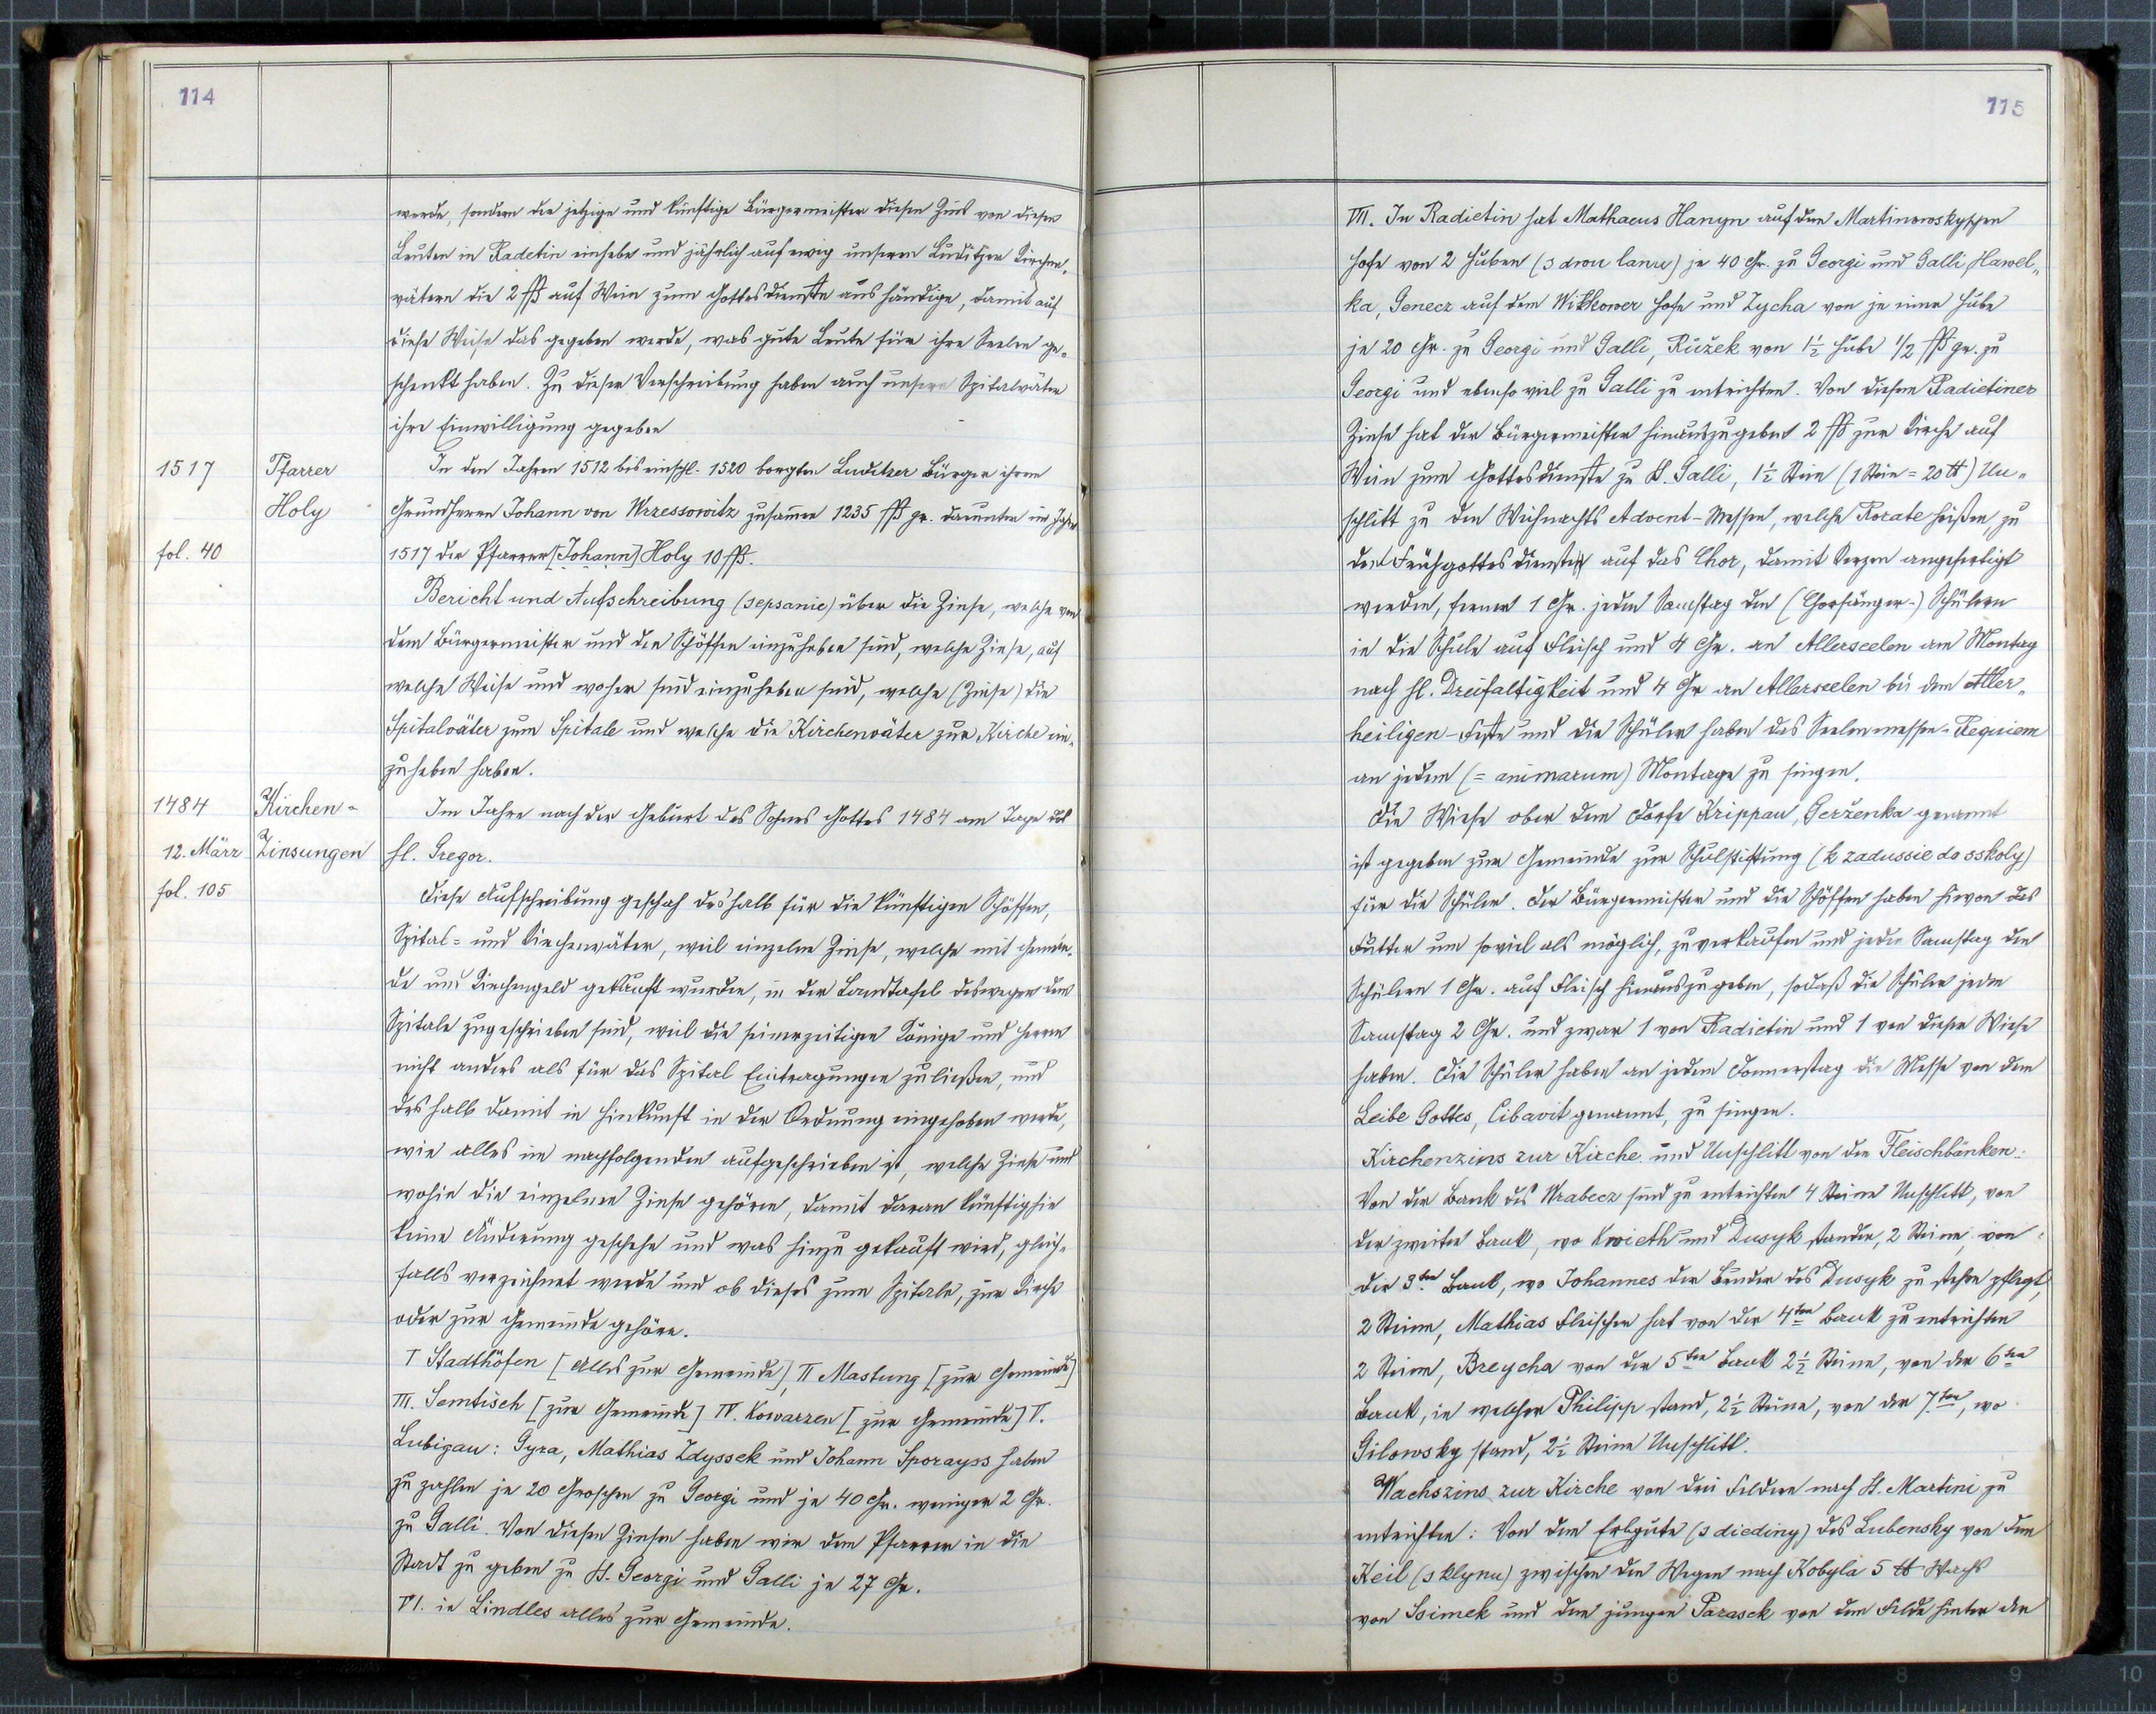 114
werde, sondern die jetzige und künftige Bürgermeister diesen Zins von diesen
Leuten in Radetin einhebe und jährlich auf ewig unseren Luditzer Kirchen„
vätern die 2 ßß auf Wein zum Gottesdienste aushändige, damit auf
diese Weise das gegeben werde, was gute Leute für ihre Seelen ge„
schenkt haben. Zu dieser Verschreibung haben auch unsere Spitalväter
ihre Einwilligung gegeben
1517 Pfarrer In den Jahren 1512 bis einschl. 1520 borgten Luditzer Bürger ihrem
Holy Grundherrn Johann von Wrzessowitz zusamen 1235 ßß gr. darunter im Jahre
fol. 40 1517 der Pfarrer [Johann] Holy 10 ßß.
Bericht und Aufschreibung (sepsanie) über die Zinse, welche von
dem Bürgermeister und den Schöffen einzuheben sind, welche Zinse, auf
welche Weise und woher sind einzuheben sind, welche (Zinse) die
Spitalväter zum Spitale und welche die Kirchenväter zur Kirche ein„
zuheben haben.
1484 Kirchen- Im Jahre nach der Geburt des Sohnes Gottes 1484 am Tage des
12. März Zinsungen hl. Gregor.
fol. 105
Diese Aufschreibung geschah deshalb für die künftigen Schöffen,
Spital= und Kirchenväter, weil einzelne Zinse, welche mit Gemein„
de und Kirchengeld gekauft wurden, in der Landtafel deswegen dem
Spitale zugeschrieben sind, weil die seinerzeitigen Könige und Herren
nicht anders als für das Spital Eintragungen zuließen, und
deshalb damit in Hinkunft in der Ordnung eingehoben werde,
wie alles im nachfolgenden aufgeschrieben ist, welche Zinse und
wohin die einzelnen Zinse gehören, damit daran künftighin
keine Änderung geschehe und was hinzu gekauft wird, gleich„
falls verzeichnet werde und ob dieses zum Spitale, zur Kirche
oder zur Gemeinde gehöre.
I Stadthöfen [Alles zur Gemeinde], II Mastung [zur Gemeinde]
III. Semtisch [zur Gemeinde] IV. Kowarzen [zur Gemeinde] V.
Lubigau: Gyra, Mathias Zdyssek und Johann Sporayss haben
zu zahlen je 20 Groschen zu Georgi und je 40 Gr. weniger 2 Gr.
zu Galli. Von diesen Zinsen haben wir dem Pfarrer in die
Stadt zu geben zu St. Georgi und Galli je 27 Gr.
VI. in Lindles alles zur Gemeinde.
115
VII. In Radietin hat Mathaeus Hanyn auf dem Martinowskyschen
Hofe von 2 Huben (s dwu lanu) je 40 Gr. zu Georgi und Galli, Hawel„
ka, Genecz auf dem Witkower Hofe und Zycha von je einer Hube
je 20 Gr. zu Georgi und Galli, Růžek von 1½ Hube ½ ßß gr. zu
Georgi und ebenso viel zu Galli zu entrichten. Von diesem Radietiner
Zinse hat der Bürgermeister hinauszugeben 2 ßß zur Kirche auf
Wein zum Gottesdienste zu St. Galli, 1½ Stein (1 Stein = 20 ℔) Un„
schlitt zu den Weihnachts Advent-Messen, welche Rorate heißen, zu
den Frühgottesdiensten auf das Chor, damit Kerzen angefertigt
werden, ferner 1 Gr. jeden Samstag den (Chorsänger-) Schülern
in die Schule auf Fleisch und 4 Gr. an Allerseelen am Montag
nach hl. Dreifaltigkeit und 4 Gr an Allerseelen bei dem Aller„
heiligen-Feste und die Schüler haben das Seelenmessen-Requiem
an jedem (= animarum) Montage zu singen.
Die Wiese ober dem Dorfe Krippau, Gerženka genannt
ist gegeben zur Gemeinde zur Schulstiftung (k zadussie do sskoly)
für die Schüler. Der Bürgermeister und die Schöffen haben hievon das
Futter um soviel als möglich, zu verkaufen und jeden Samstag den
Schülern 1 Gr. auf Fleisch hinauszugeben, sodaß die Schüler jeden
Samstag 2 Gr. und zwar 1 von Radietin und 1 von dieser Wiese
haben. Die Schüler haben an jedem Donnerstag die Messe von dem
Leibe Gottes, Cibavit genannt, zu singen.
Kirchenzins zur Kirche und Unschlitt von den Fleischbänken:
Von der Bank des Wrabecz sind zu entrichten 4 Steine Unschlitt, von
der zweiten Bank, wo Kwieth und Dusyk standen, 2 Steine, von
der 3ten Bank, wo Johannes der Bruder des Dusyk zu stehen pflegt,
2 Steine, Mathias Fleischer hat von der 4ten Bank zu entrichten
2 Steine, Breycha von der 5ten Bank 2½ Steine, von der 6ten
Bank, in welcher Philipp stand, 2½ Steine, von der 7ten, wo
Gilowsky stand, 2½ Steine Unschlitt.
Wachszins zur Kirche von den Feldern nach St. Martini zu
entrichten: Von dem Erbgute (s dieding) des Lubensky von dem
Keil (s klynu) zwischen den Wegen nach Kobyla 5 ℔ Wachs
von Ssimek und dem jungen Parasek von dem Felde hinter der